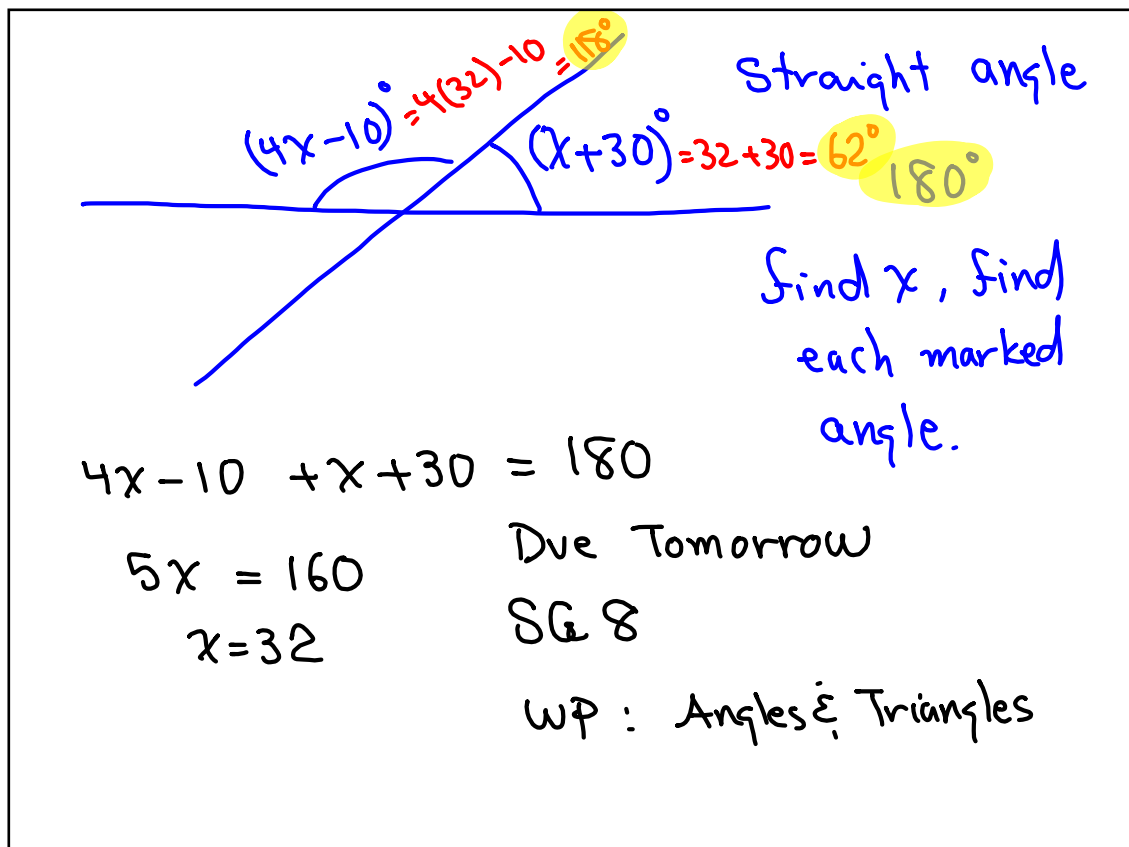 (4x-10)° = 4(32)-10 = 118°
Straight angle
(x+30)° = 32+30 = 62°
180°
find x, find
each marked
angle.
4x-10 +x+30 = 180
5x = 160
x=32
Due Tomorrow
SG 8
WP: Angles & Triangles